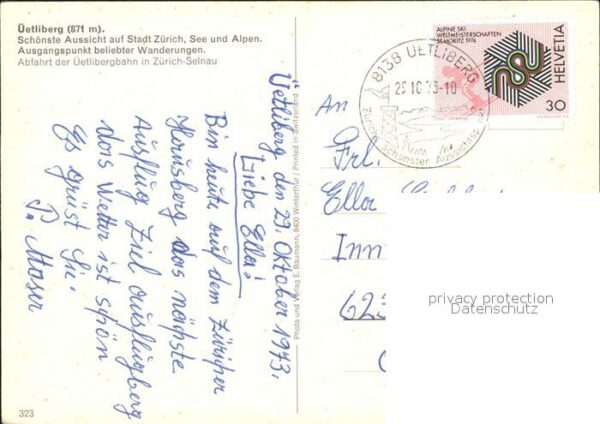 Üetliberg (871 m).
Schönste Aussicht auf Stadt Zürich, See und Alpen.
Ausgangspunkt beliebter Wanderungen.
Abfahrt der Uetlibergbahn in Zürich-Selnau
Uetliberg den 29. Oktober 1973.
Liebe Ella!
Bin heute auf dem Züricher
das nächste
Ausflug Ziel
das Wetter ist schön
Es grüst Sie
P. Moser
323
Photo und Verlag E. Baumann, 8400 Winterthur / Printed in Switzerland
8138 UETLIBERG
29.10.73-10
Zürichs schönster Aussichts
ALPINE SKI-
WELTMEISTERSCHAFTEN
ST. MORITZ 1974
HELVETIA
30
An
Frl.
Ella
Inn
623
privacy protection
Datenschutz